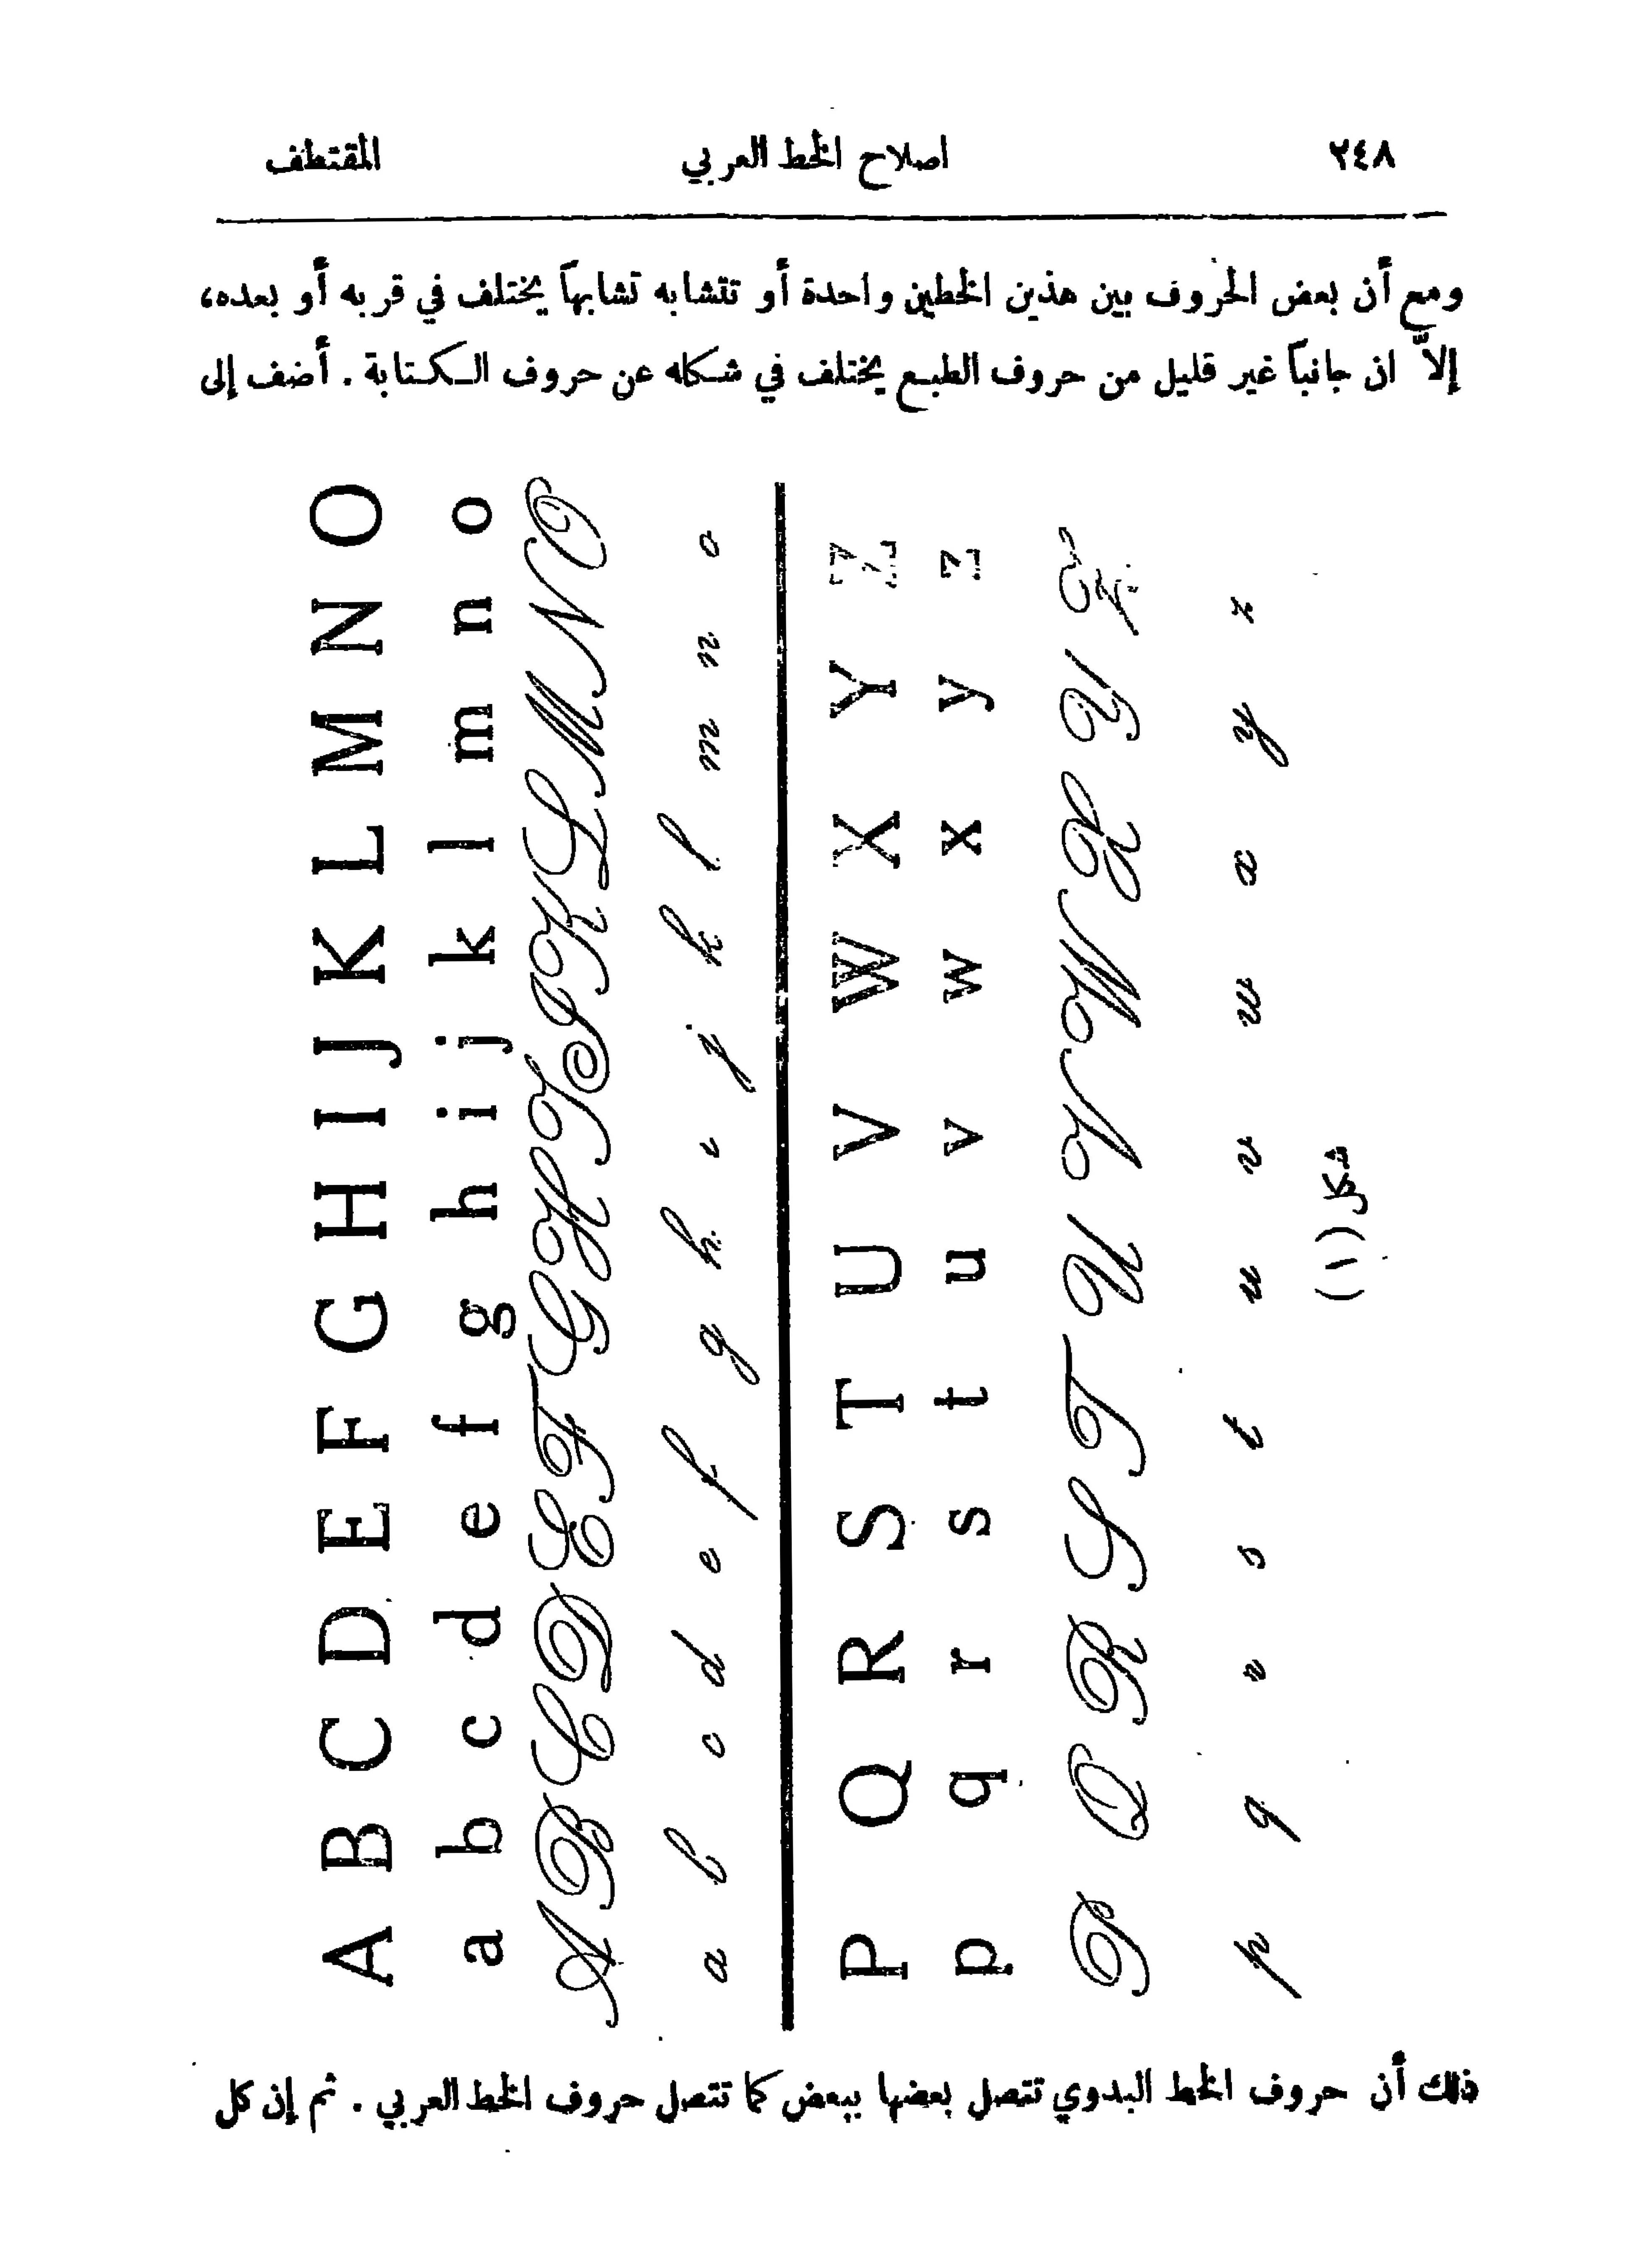 ٢٤٨ اصلاح الخط العربي المقتطف
ومع أن بعض الحروف بين هذين الخطين واحدة أو تتشابه تشابهاً يختلف في قربه أو بعده،
إلاّ ان جانباً غير قليل من حروف الطبع يختلف في شكله عن حروف الكتابة . أضف إلى
A B C D E F G H I J K L M N O
a b c d e f g h i j k l m n o
A B C D E F G H I J K L M N O
a b c d e f g h i j k l m n o
P Q R S T U V W X Y Z
p q r s t u v w x y z
P Q R S T U V W X Y Z
p q r s t u v w x y z
شكل (١)
ذلك أن حروف الخط البدوي تتصل بعضها ببعض كما تتصل حروف الخط العربي . ثم إن كل